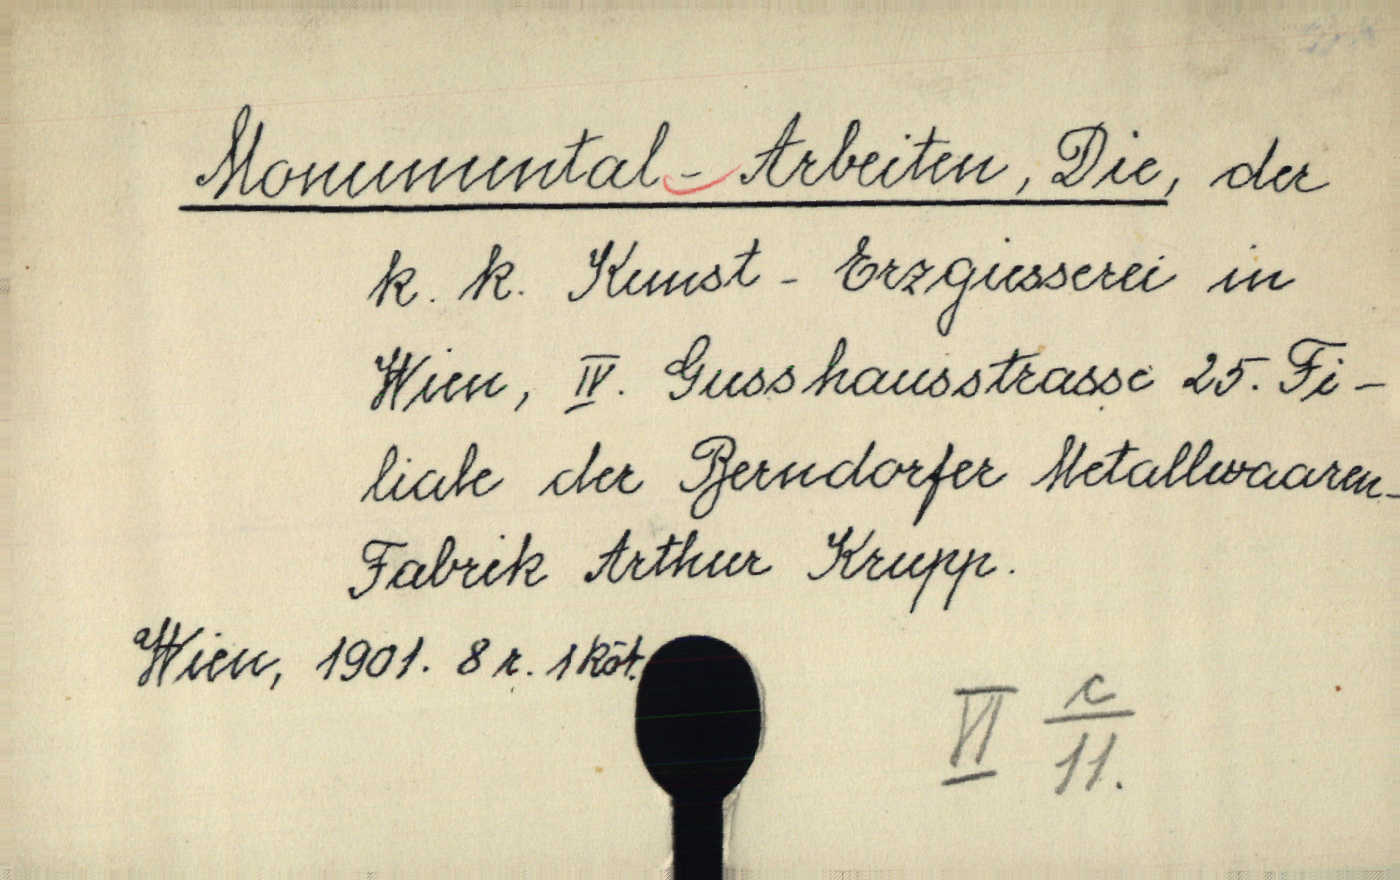 Monumental-Arbeiten, Die, der
k. k. Kunst - Erzgiesserei in
Wien, IV. Gusshausstrasse 25. Fi-
liale der Berndorfer Metallwaaren-
Fabrik Arthur Krupp.
Wien, 1901. 8 r. 1 köt.
VI c/11.